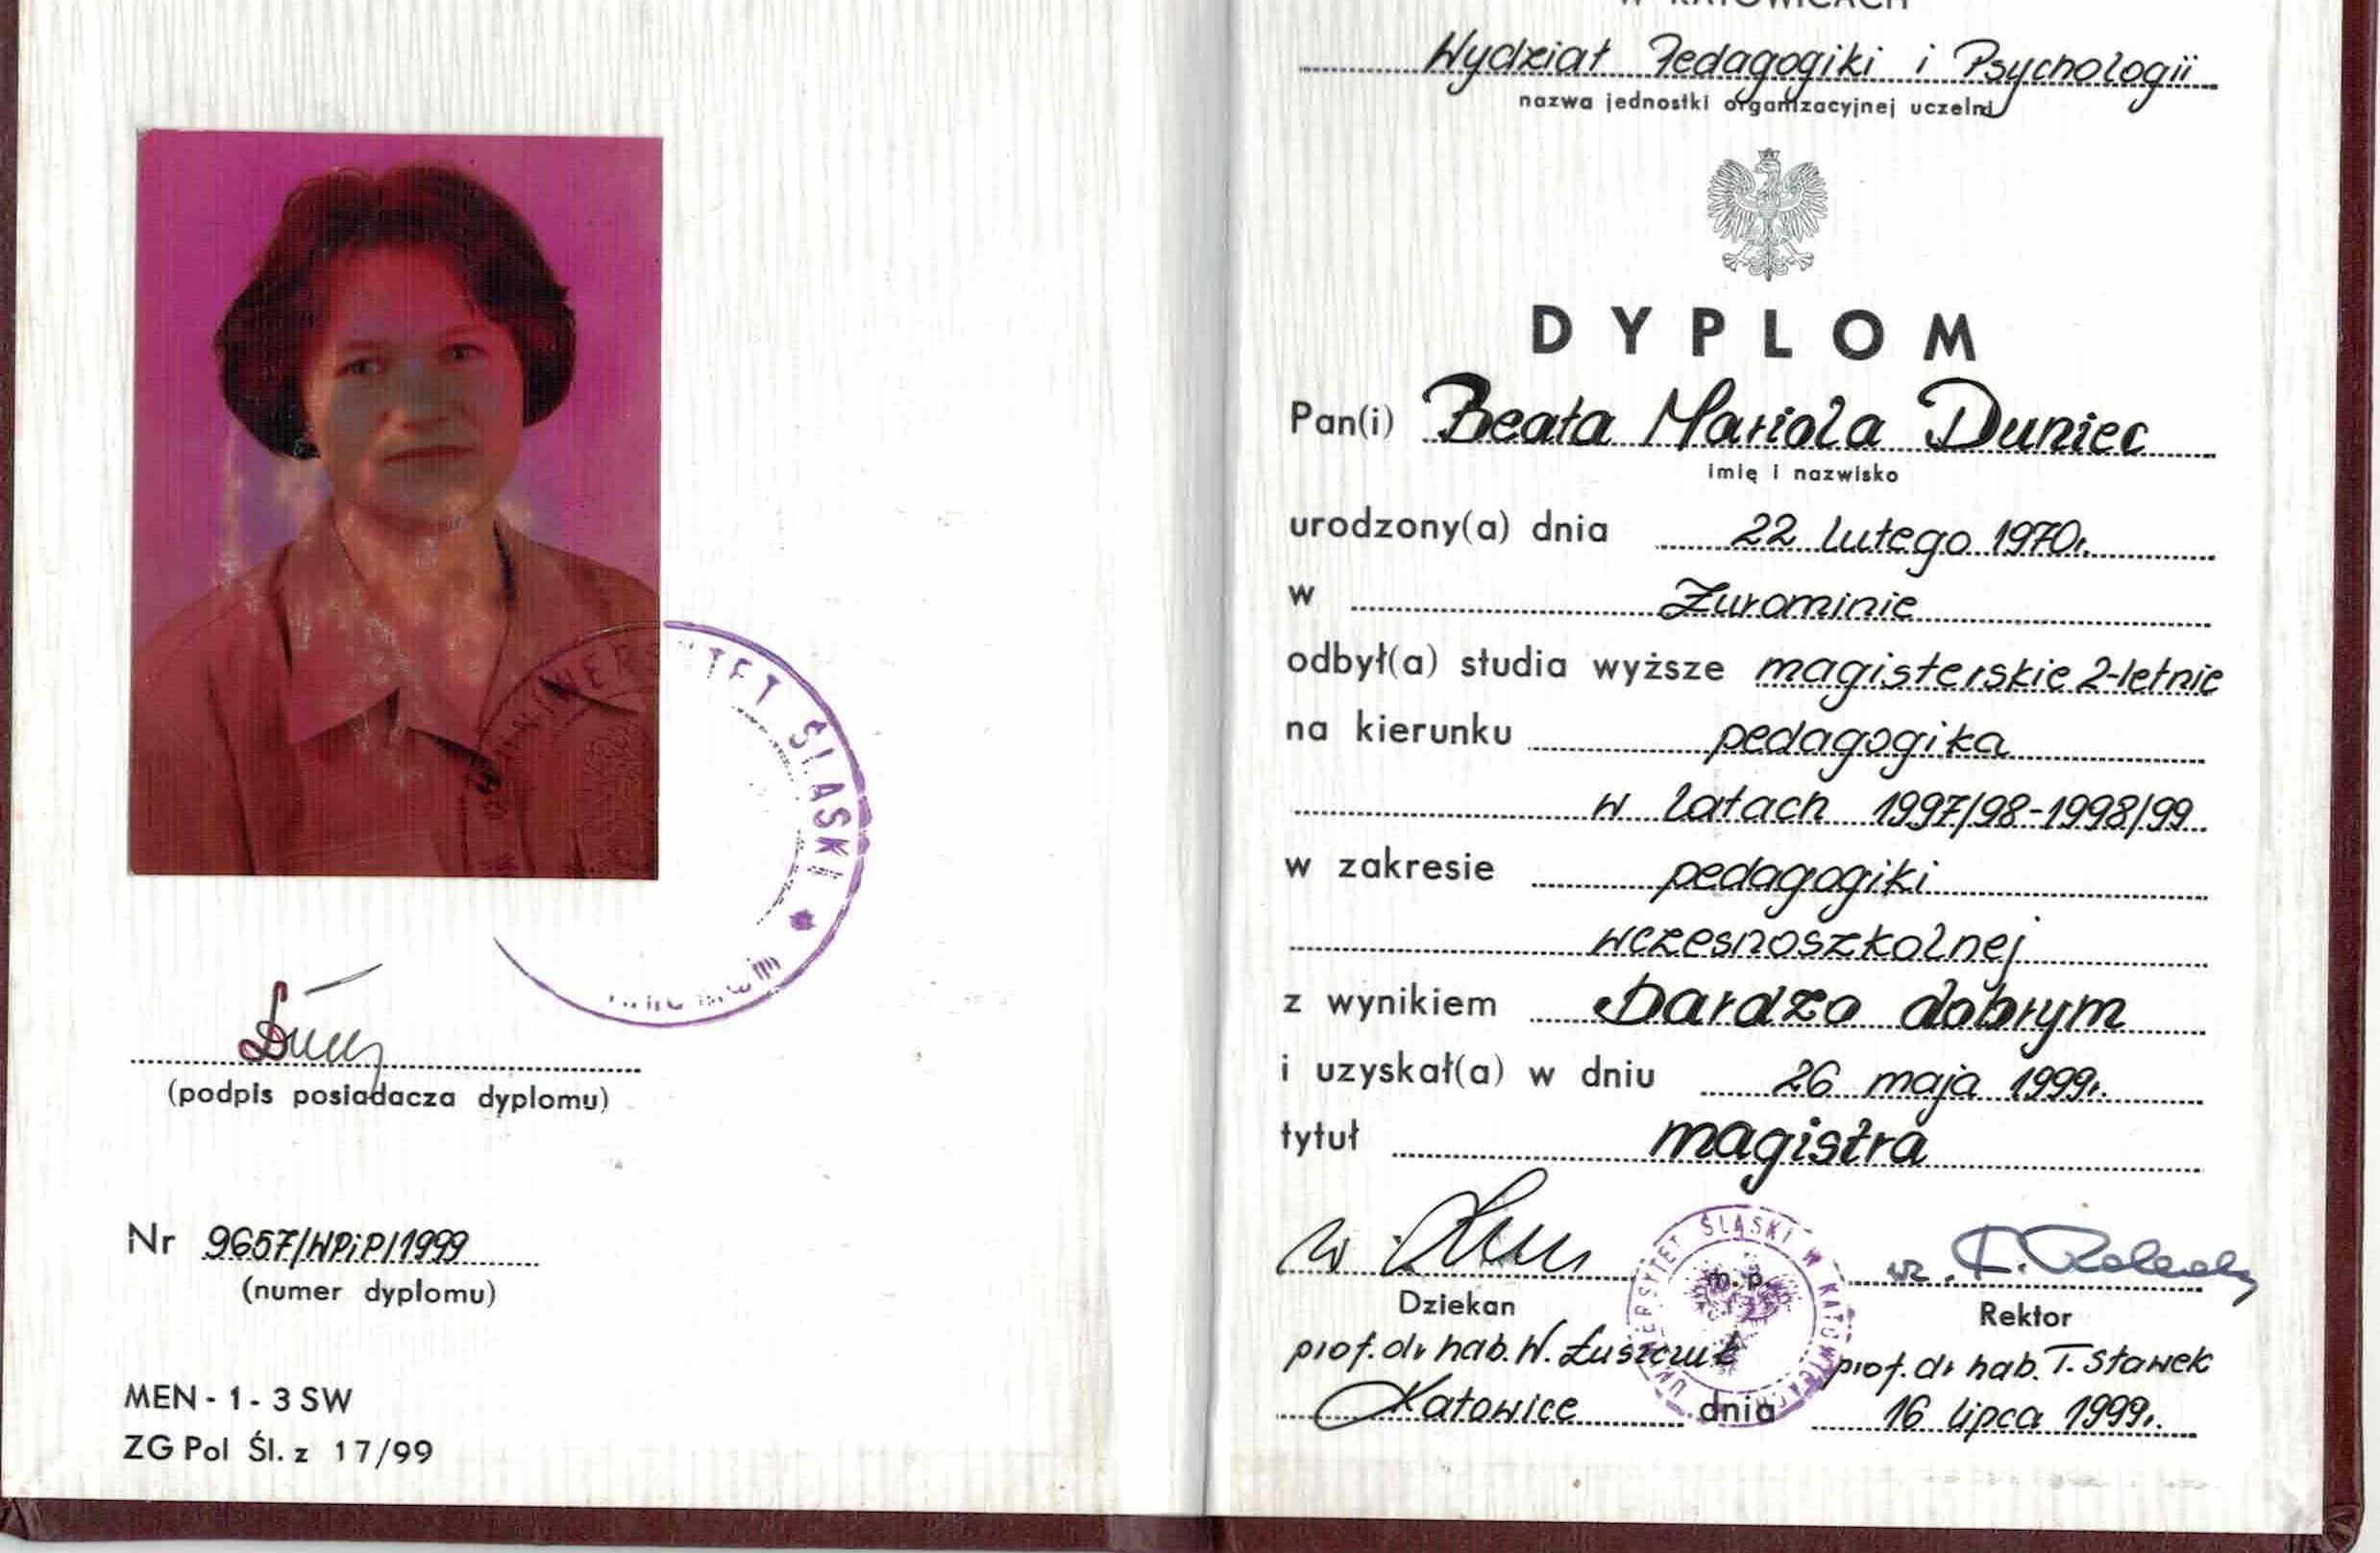 (podpis posiadacza dyplomu)
Nr 9657/WPiP/1999
(numer dyplomu)
MEN - 1 - 3 SW
ZG Pol Śl. z 17/99
UNIWERSYTET ŚLĄSKI
W KATOWICACH
Wydział Pedagogiki i Psychologii
nazwa jednostki organizacyjnej uczelni
DYPLOM
Pan(i) Beata Mariola Duniec
imię i nazwisko
urodzony(a) dnia 22 lutego 1970r.
w Żurominie
odbył(a) studia wyższe magisterskie 2-letnie
na kierunku pedagogika
w latach 1997/98-1998/99
w zakresie pedagogiki
wczesnoszkolnej
z wynikiem bardzo dobrym
i uzyskał(a) w dniu 26 maja 1999r.
tytuł magistra
UNIWERSYTET ŚLĄSKI W KATOWICACH
m. p.
Dziekan Rektor
prof. dr hab. W. Łuszczuk prof. dr hab. T. Sławek
Katowice dnia 16 lipca 1999r.